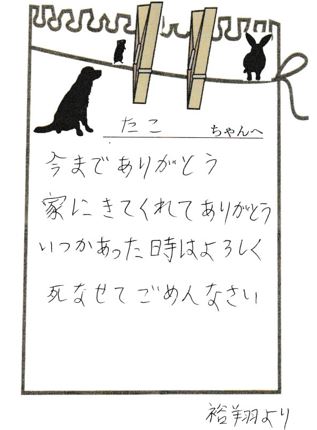 たこ ちゃんへ
今までありがとう
家にきてくれてありがとう
いつかあった時はよろしく
死なせてごめんなさい
裕翔より